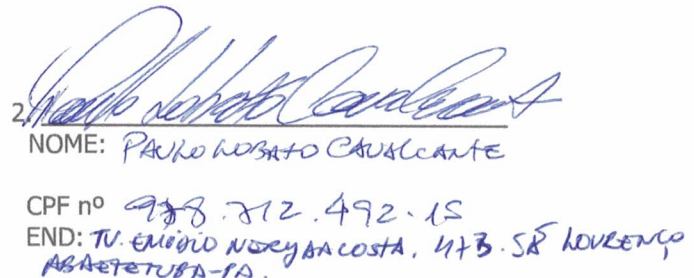 2. Paulo Lobato Cavalcante
NOME: PAULO LOBATO CAVALCANTE
CPF nº 978.712.492-15
END: TV. EMÍDIO NERY DA COSTA, 473. Sº LOURENÇO
ABAETETUBA-PA.